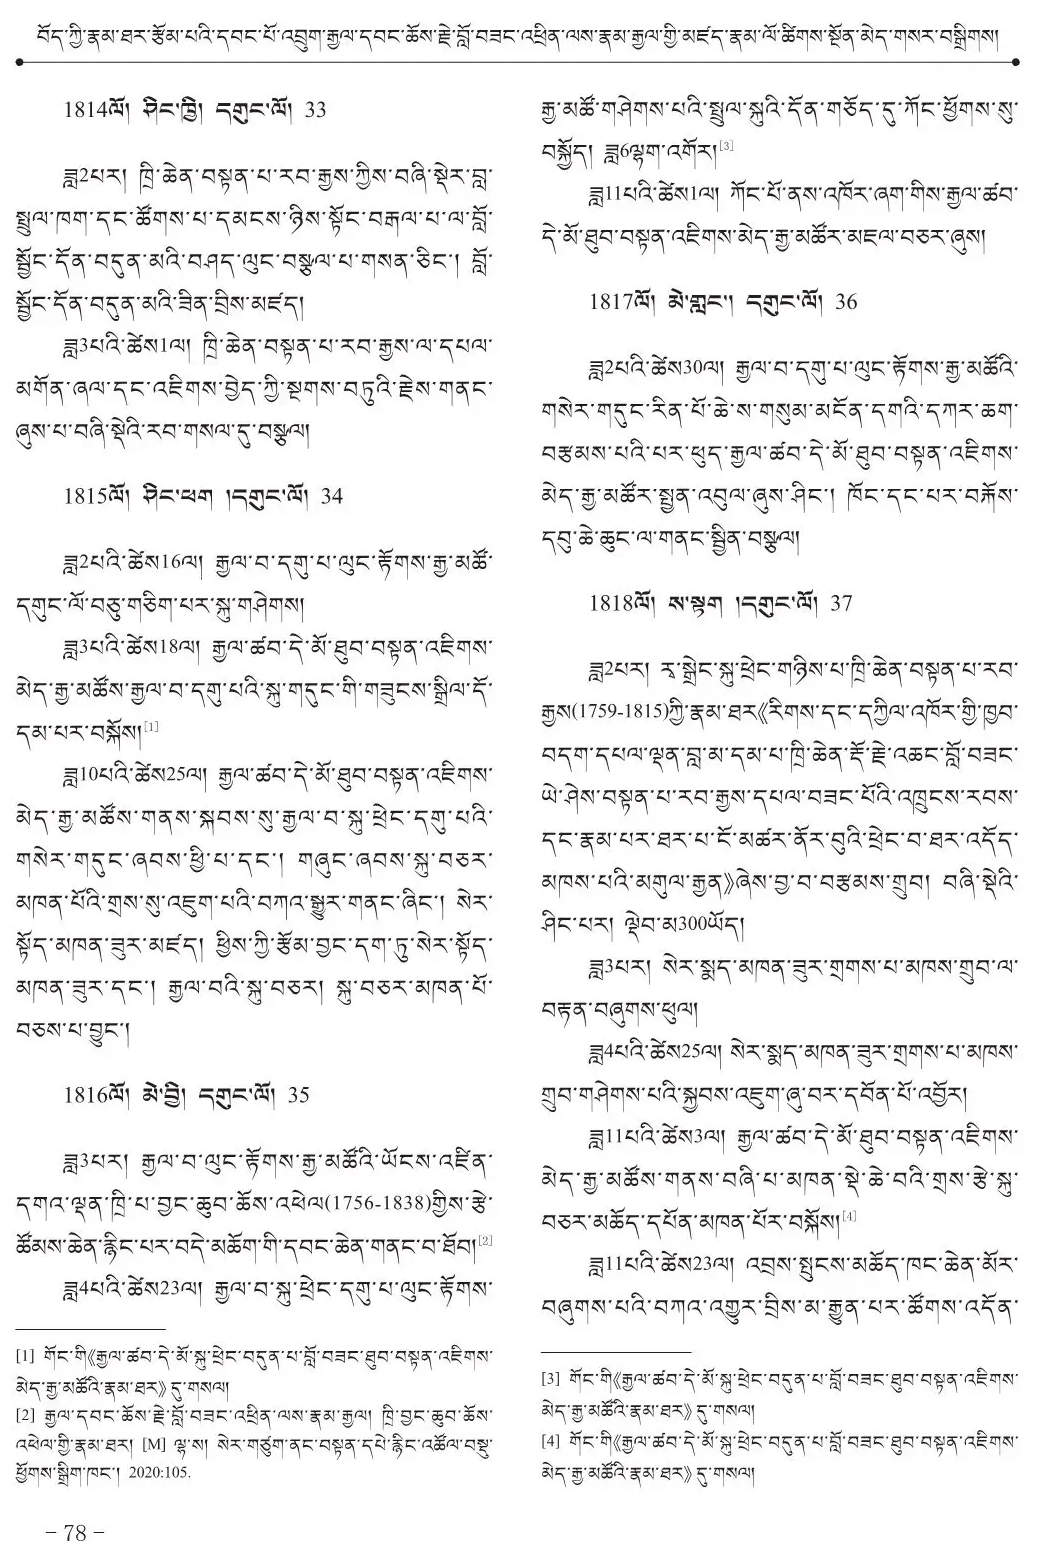 བོད་ཀྱི་རྣམ་ཐར་རྩོམ་པའི་དབང་པོ་འབྲུག་རྒྱལ་དབང་ཆོས་རྗེ་བློ་བཟང་འཕྲིན་ལས་རྣམ་རྒྱལ་གྱི་མཛད་རྣམ་ལོ་ཚིགས་སྔོན་མེད་གསར་བསྒྲིགས།
1814ལོ། ཤིང་ཁྱི། དགུང་ལོ། 33
ཟླ2པར། ཁྲི་ཆེན་བསྟན་པ་རབ་རྒྱས་ཀྱིས་བཞི་སྡེར་བླ་
སྤྲུལ་ཁག་དང་ཚོགས་པ་དམངས་ཉིས་སྟོང་བརྒལ་པ་ལ་བློ་
སྦྱོང་དོན་བདུན་མའི་བཤད་ལུང་བསྩལ་པ་གསན་ཅིང་། བློ་
སྦྱོང་དོན་བདུན་མའི་ཟིན་བྲིས་མཛད།
ཟླ3པའི་ཚེས1ལ། ཁྲི་ཆེན་བསྟན་པ་རབ་རྒྱས་ལ་དཔལ་
མགོན་ཞལ་དང་འཇིགས་བྱེད་ཀྱི་སྔགས་བཏུའི་རྗེས་གནང་
ཞུས་པ་བཞི་སྡེའི་རབ་གསལ་དུ་བསྩལ།
1815ལོ། ཤིང་ཕག །དགུང་ལོ། 34
ཟླ2པའི་ཚེས16ལ། རྒྱལ་བ་དགུ་པ་ལུང་རྟོགས་རྒྱ་མཚོ་
དགུང་ལོ་བཅུ་གཅིག་པར་སྐུ་གཤེགས།
ཟླ3པའི་ཚེས18ལ། རྒྱལ་ཚབ་དེ་མོ་ཐུབ་བསྟན་འཇིགས་
མེད་རྒྱ་མཚོས་རྒྱལ་བ་དགུ་པའི་སྐུ་གདུང་གི་གཟུངས་སྒྲིལ་དོ་
དམ་པར་བསྐོས།[1]
ཟླ10པའི་ཚེས25ལ། རྒྱལ་ཚབ་དེ་མོ་ཐུབ་བསྟན་འཇིགས་
མེད་རྒྱ་མཚོས་གནས་སྐབས་སུ་རྒྱལ་བ་སྐུ་ཕྲེང་དགུ་པའི་
གསེར་གདུང་ཞབས་ཕྱི་པ་དང་། གཞུང་ཞབས་སྐུ་བཅར་
མཁན་པོའི་གྲས་སུ་འཇུག་པའི་བཀའ་སྒྱུར་གནང་ཞིང་། སེར་
སྟོད་མཁན་ཟུར་མཛད། ཕྱིས་ཀྱི་རྩོམ་བྱང་དག་ཏུ་སེར་སྟོད་
མཁན་ཟུར་དང་། རྒྱལ་བའི་སྐུ་བཅར། སྐུ་བཅར་མཁན་པོ་
བཅས་པ་བྱུང་།
1816ལོ། མེ་བྱི། དགུང་ལོ། 35
ཟླ3པར། རྒྱལ་བ་ལུང་རྟོགས་རྒྱ་མཚོའི་ཡོངས་འཛིན་
དགའ་ལྡན་ཁྲི་པ་བྱང་ཆུབ་ཆོས་འཕེལ(1756-1838)གྱིས་རྩེ་
ཚོམས་ཆེན་རྙིང་པར་བདེ་མཆོག་གི་དབང་ཆེན་གནང་བ་ཐོབ།[2]
ཟླ4པའི་ཚེས23ལ། རྒྱལ་བ་སྐུ་ཕྲེང་དགུ་པ་ལུང་རྟོགས་
[1] གོང་གི《རྒྱལ་ཚབ་དེ་མོ་སྐུ་ཕྲེང་བདུན་པ་བློ་བཟང་ཐུབ་བསྟན་འཇིགས་
མེད་རྒྱ་མཚོའི་རྣམ་ཐར》དུ་གསལ།
[2] རྒྱལ་དབང་ཆོས་རྗེ་བློ་བཟང་འཕྲིན་ལས་རྣམ་རྒྱལ། ཁྲི་བྱང་ཆུབ་ཆོས་
འཕེལ་གྱི་རྣམ་ཐར། [M] ལྷ་ས། སེར་གཙུག་ནང་བསྟན་དཔེ་རྙིང་འཚོལ་བསྡུ་
ཕྱོགས་སྒྲིག་ཁང་། 2020:105.
རྒྱ་མཚོ་གཤེགས་པའི་སྤྲུལ་སྐུའི་དོན་གཅོད་དུ་ཀོང་ཕྱོགས་སུ་
བསྐྱོད། ཟླ6ལྷག་འགོར།[3]
ཟླ11པའི་ཚེས1ལ། ཀོང་པོ་ནས་འཁོར་ཞག་གིས་རྒྱལ་ཚབ་
དེ་མོ་ཐུབ་བསྟན་འཇིགས་མེད་རྒྱ་མཚོར་མཇལ་བཅར་ཞུས།
1817ལོ། མེ་གླང་། དགུང་ལོ། 36
ཟླ2པའི་ཚེས30ལ། རྒྱལ་བ་དགུ་པ་ལུང་རྟོགས་རྒྱ་མཚོའི་
གསེར་གདུང་རིན་པོ་ཆེ་ས་གསུམ་མངོན་དགའི་དཀར་ཆག་
བརྩམས་པའི་པར་ཕུད་རྒྱལ་ཚབ་དེ་མོ་ཐུབ་བསྟན་འཇིགས་
མེད་རྒྱ་མཚོར་སྤྱན་འབུལ་ཞུས་ཤིང་། ཁོང་དང་པར་བརྐོས་
དབུ་ཆེ་ཆུང་ལ་གནང་སྦྱིན་བསྩལ།
1818ལོ། ས་སྟག །དགུང་ལོ། 37
ཟླ2པར། རྭ་སྒྲེང་སྐུ་ཕྲེང་གཉིས་པ་ཁྲི་ཆེན་བསྟན་པ་རབ་
རྒྱས(1759-1815)ཀྱི་རྣམ་ཐར《རིགས་དང་དཀྱིལ་འཁོར་གྱི་ཁྱབ་
བདག་དཔལ་ལྡན་བླ་མ་དམ་པ་ཁྲི་ཆེན་རྡོ་རྗེ་འཆང་བློ་བཟང་
ཡེ་ཤེས་བསྟན་པ་རབ་རྒྱས་དཔལ་བཟང་པོའི་འཁྲུངས་རབས་
དང་རྣམ་པར་ཐར་པ་ངོ་མཚར་ནོར་བུའི་ཕྲེང་བ་ཐར་འདོད་
མཁས་པའི་མགུལ་རྒྱན》ཞེས་བྱ་བ་བརྩམས་གྲུབ། བཞི་སྡེའི་
ཤིང་པར། ལྡེབ་མ300ཡོད།
ཟླ3པར། སེར་སྨད་མཁན་ཟུར་གྲགས་པ་མཁས་གྲུབ་ལ་
བརྟན་བཞུགས་ཕུལ།
ཟླ4པའི་ཚེས25ལ། སེར་སྨད་མཁན་ཟུར་གྲགས་པ་མཁས་
གྲུབ་གཤེགས་པའི་སྐྱབས་འཇུག་ཞུ་བར་དབོན་པོ་འབྱོར།
ཟླ11པའི་ཚེས3ལ། རྒྱལ་ཚབ་དེ་མོ་ཐུབ་བསྟན་འཇིགས་
མེད་རྒྱ་མཚོས་གནས་བཞི་པ་མཁན་སྡེ་ཆེ་བའི་གྲས་རྩེ་སྐུ་
བཅར་མཆོད་དཔོན་མཁན་པོར་བསྐོས།[4]
ཟླ11པའི་ཚེས23ལ། འབྲས་སྤུངས་མཆོད་ཁང་ཆེན་མོར་
བཞུགས་པའི་བཀའ་འགྱུར་བྲིས་མ་རྒྱུན་པར་ཚོགས་འདོན་
[3] གོང་གི《རྒྱལ་ཚབ་དེ་མོ་སྐུ་ཕྲེང་བདུན་པ་བློ་བཟང་ཐུབ་བསྟན་འཇིགས་
མེད་རྒྱ་མཚོའི་རྣམ་ཐར》དུ་གསལ།
[4] གོང་གི《རྒྱལ་ཚབ་དེ་མོ་སྐུ་ཕྲེང་བདུན་པ་བློ་བཟང་ཐུབ་བསྟན་འཇིགས་
མེད་རྒྱ་མཚོའི་རྣམ་ཐར》དུ་གསལ།
– 78 –